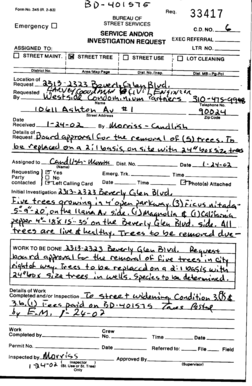 BD-401575
Form No. 345 (R. 2-92)
Req. 33417
BUREAU OF
STREET SERVICES
Emergency
C.D. NO. 6
SERVICE AND/OR
INVESTIGATION REQUEST
EXEC REFERRAL
LTR NO.
ASSIGNED TO:
STREET MAINT. STREET TREE STREET USE LOT CLEANING
District No. Area/Map Page Dist. No./Insp. Dist. MB-Pg-Pcl
Location of
Request 2313-2323 Beverly Glen Blvd.
Requested
By Westside Condominium Partners 310-475-9998
10601 Ashton Av #1 90024
Street Address Zip Code
Date
Received 1-24-02 By Morriss - Candlish
Details of
Request Board approval for the removal of (5) trees. To
be replaced on a 2:1 basis on site with 24" box size trees
Assigned to Candlish-Month Dist. No. Date 1-24-02
Requesting Yes Emerg. Trk. Time
Party No
contacted Left Calling Card Date Time Photo(s) Attached
Initial Investigation 2313-2323 Beverly Glen Blvd.
Five trees growing in 4' open parkway. (3) Ficus nitada-
5-5-20, on the Llano Av side. (1) Magnolia & (1) California
pepper 4"-18" 15-35' on the Beverly Glen Blvd. side. All
trees are live & healthy. Trees to be removed due
WORK TO BE DONE 2313-2323 Beverly Glen Blvd. Request
board approval for the removal of five trees in City
right of way. Trees to be replaced on a 2:1 basis with
24" box size trees in wells. Species to be determined.
Details of Work
Completed and/or Inspection To street widening Condition 3.(B) &
3.b.(1) Fees paid on BD-401575 Trees Posted
by E.M. 1-26-02
Work Crew
Completed by No. Time Date
Permit No. Date Referred to: File Field
Inspected by Morriss Approved By
Inspector (Supervisor)
1-24-02 (St. Use or St. Tree)
Only